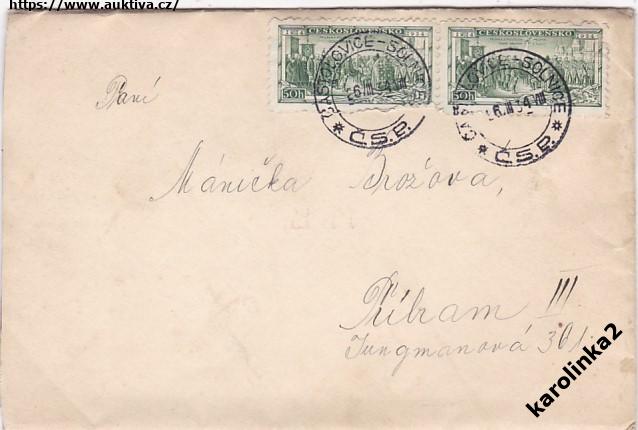 https://www.auktiva.cz/
1914 ČESKOSLOVENSKO 1934
50h
ČESKOSLOVENSKO
50h
ČASTOLOVICE-SOLNICE
6.III.34
* Č.S.P. *
ČASTOLOVICE-SOLNICE
6.III.34
* Č.S.P. *
Paní
Mánička Brožova,
Příbram III
Jungmanová 301.
karolinka2